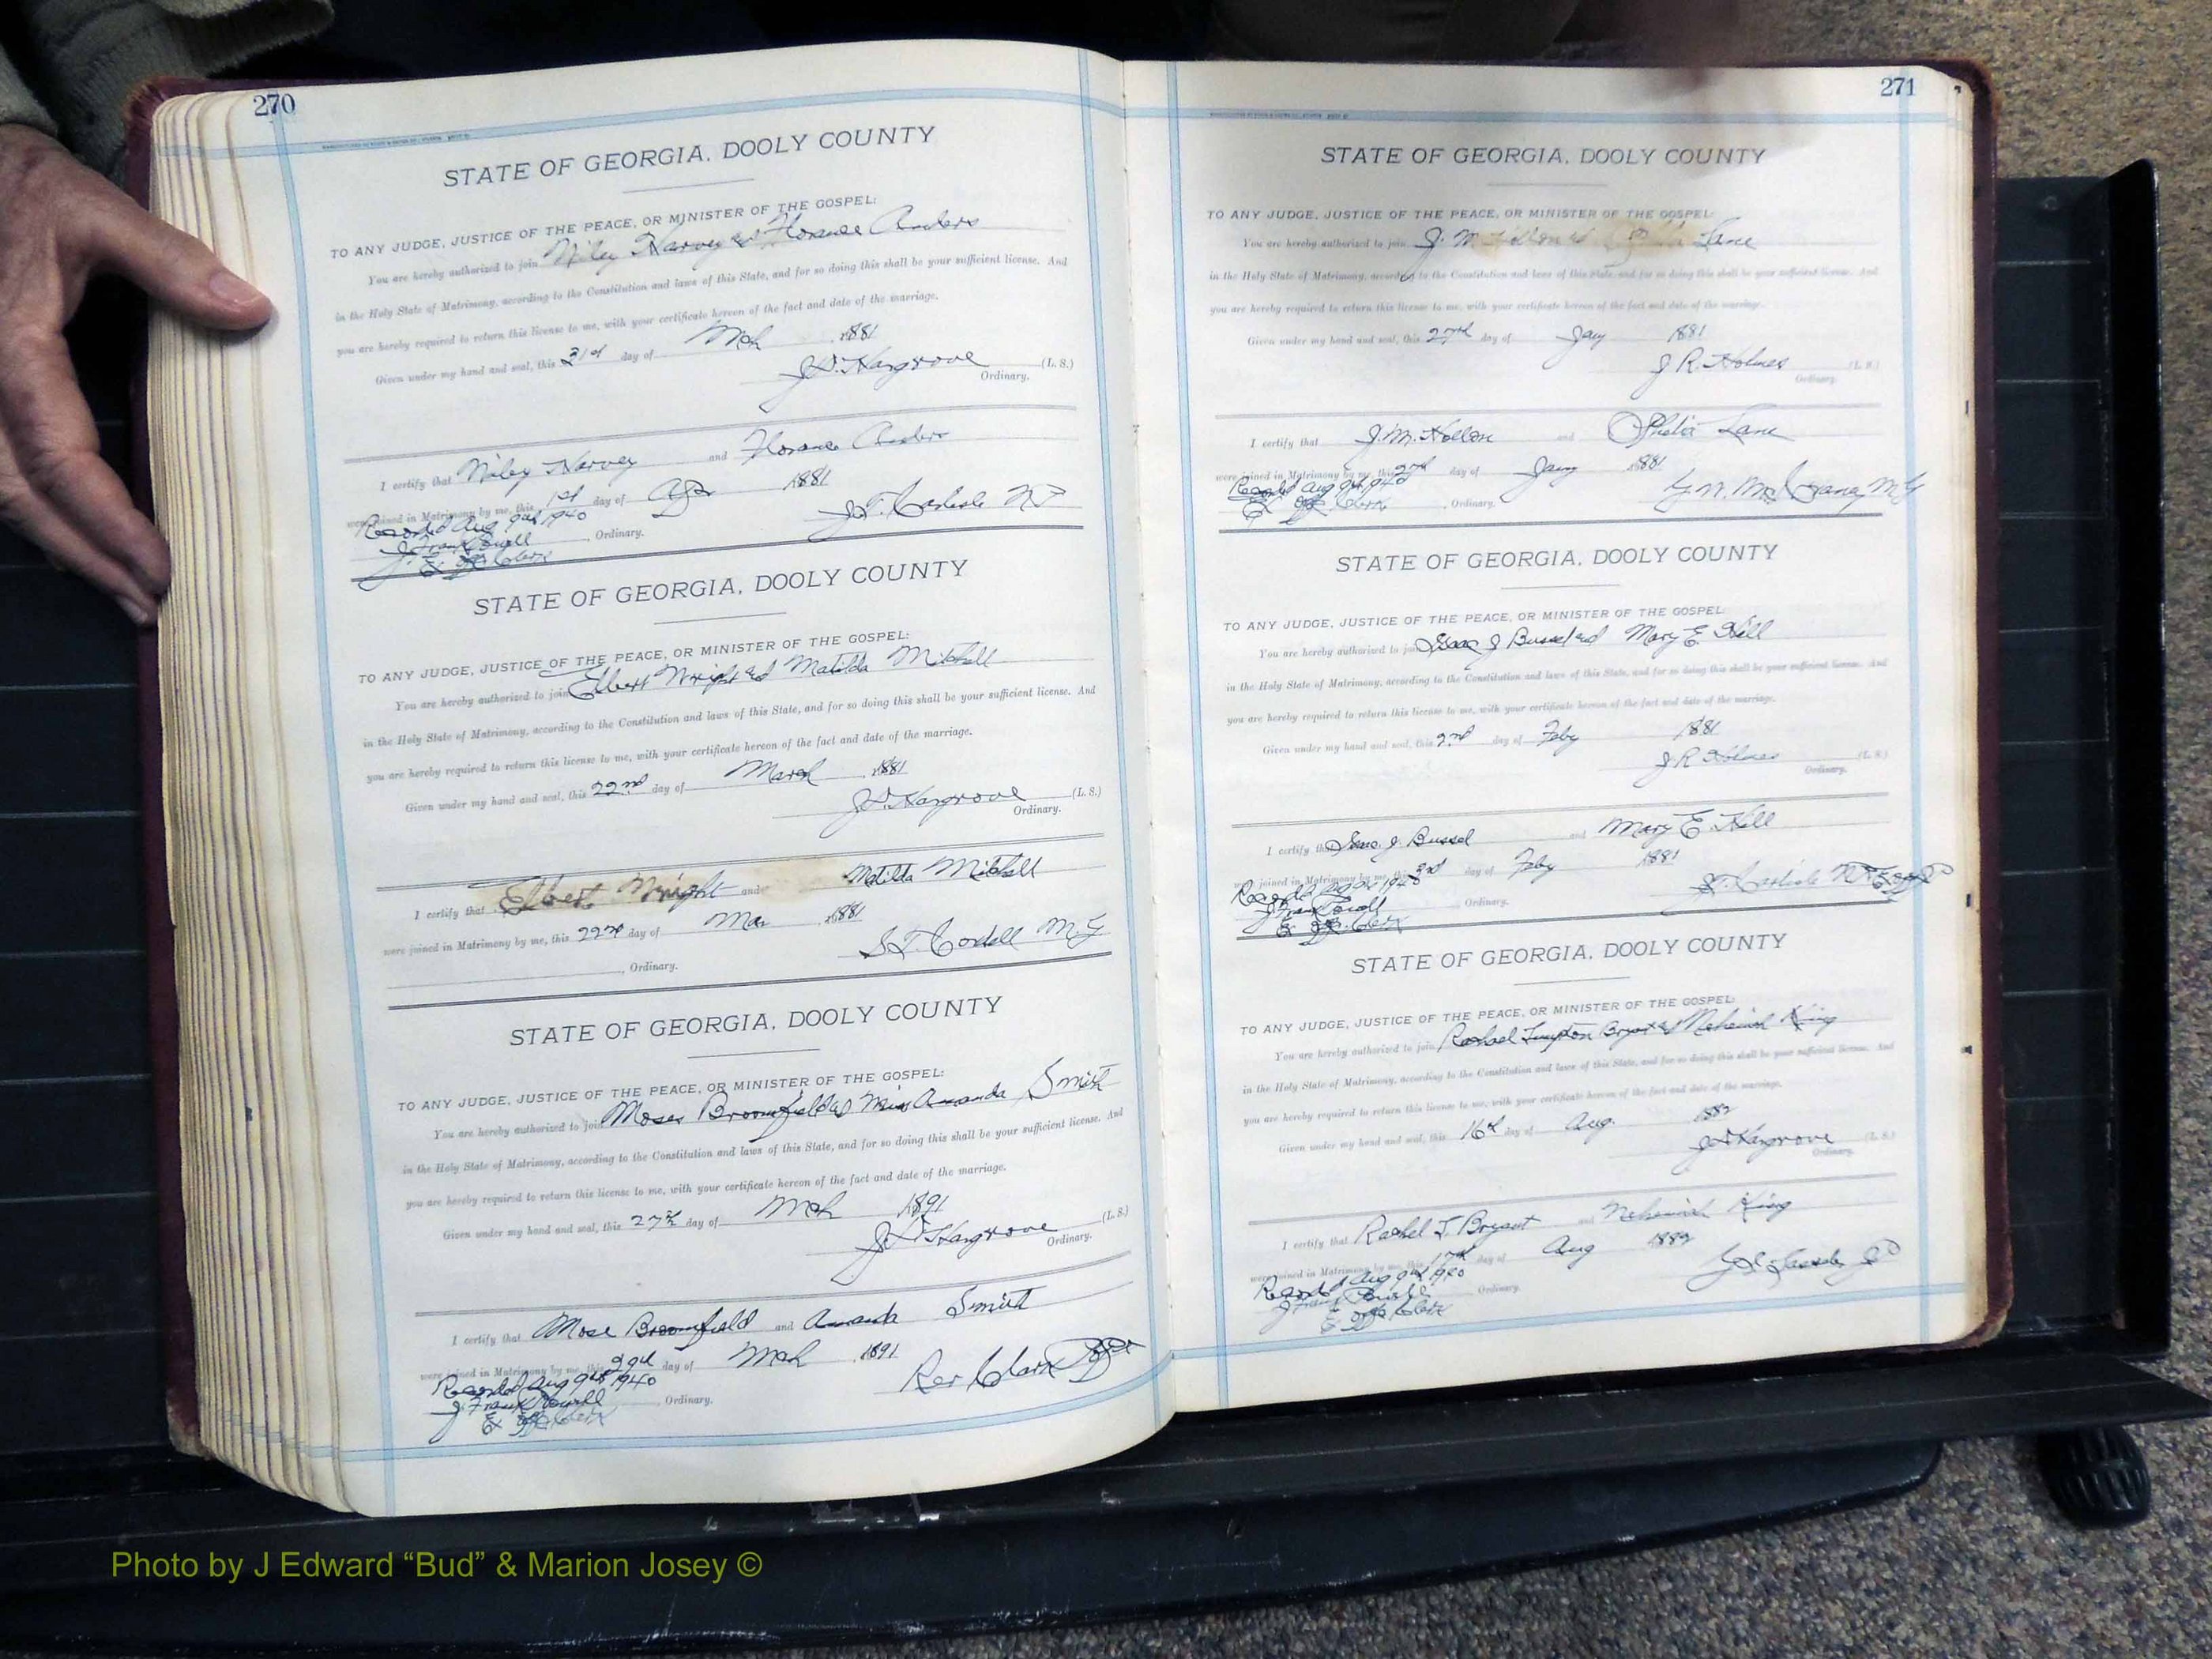 270
STATE OF GEORGIA, DOOLY COUNTY
TO ANY JUDGE, JUSTICE OF THE PEACE, OR MINISTER OF THE GOSPEL:
You are hereby authorized to join Wiley Harvey and Florance Anders
in the Holy State of Matrimony, according to the Constitution and laws of this State, and for so doing this shall be your sufficient license. And
you are hereby required to return this license to me, with your certificate hereon of the fact and date of the marriage.
Given under my hand and seal, this 31st day of Mch 1881
J.D. Hargrove (L. S.)
Ordinary.
I certify that Wiley Harvey and Florance Anders
were joined in Matrimony by me, this 1st day of Apr 1881
Recorded Aug 9th 1940 J.T. Carlisle
J. Frank Powell , Ordinary.
Ex off Clerk
STATE OF GEORGIA, DOOLY COUNTY
TO ANY JUDGE, JUSTICE OF THE PEACE, OR MINISTER OF THE GOSPEL:
You are hereby authorized to join Elbert Wright and Matilda Mitchell
in the Holy State of Matrimony, according to the Constitution and laws of this State, and for so doing this shall be your sufficient license. And
you are hereby required to return this license to me, with your certificate hereon of the fact and date of the marriage.
Given under my hand and seal, this 22nd day of March 1881
J.D. Hargrove (L. S.)
Ordinary.
I certify that Elbert Wright and Matilda Mitchell
were joined in Matrimony by me, this 22nd day of Mar 1881
S.T. Cordell M.G
, Ordinary.
STATE OF GEORGIA, DOOLY COUNTY
TO ANY JUDGE, JUSTICE OF THE PEACE, OR MINISTER OF THE GOSPEL:
You are hereby authorized to join Moses Broomfield and Miss Amanda Smith
in the Holy State of Matrimony, according to the Constitution and laws of this State, and for so doing this shall be your sufficient license. And
you are hereby required to return this license to me, with your certificate hereon of the fact and date of the marriage.
Given under my hand and seal, this 27th day of Mch 1891
J.D. Hargrove (L. S.)
Ordinary.
I certify that Mose Broomfield and Amanda Smith
were joined in Matrimony by me, this 29th day of Mch 1891
Recorded Aug 9th 1940 Rev Clark
J. Frank Powell , Ordinary.
Ex off Clerk
271
STATE OF GEORGIA, DOOLY COUNTY
TO ANY JUDGE, JUSTICE OF THE PEACE, OR MINISTER OF THE GOSPEL:
You are hereby authorized to join J. M. Lane
in the Holy State of Matrimony, according to the Constitution and laws of this State, and for so doing this shall be your sufficient license. And
you are hereby required to return this license to me, with your certificate hereon of the fact and date of the marriage.
Given under my hand and seal, this 27th day of Jany 1881
J R. Holmes (L. S.)
Ordinary.
I certify that J.M. Hollon and Ophelia Lane
were joined in Matrimony by me, this 27th day of Jany 1881
Recorded Aug 9th 1940
Ex off Clerk , Ordinary.
STATE OF GEORGIA, DOOLY COUNTY
TO ANY JUDGE, JUSTICE OF THE PEACE, OR MINISTER OF THE GOSPEL:
You are hereby authorized to join Isaac J Bussel and Mary E Hill
in the Holy State of Matrimony, according to the Constitution and laws of this State, and for so doing this shall be your sufficient license. And
you are hereby required to return this license to me, with your certificate hereon of the fact and date of the marriage.
Given under my hand and seal, this 2nd day of Feby 1881
J R Holmes (L. S.)
Ordinary.
I certify that Isaac J. Bussel and Mary E. Hill
were joined in Matrimony by me, this 3rd day of Feby 1881
Recorded Aug 9th 1940 J.T. Carlisle
J Frank Powell , Ordinary.
Ex off Clerk
STATE OF GEORGIA, DOOLY COUNTY
TO ANY JUDGE, JUSTICE OF THE PEACE, OR MINISTER OF THE GOSPEL:
You are hereby authorized to join Bryant and Nehemiah King
in the Holy State of Matrimony, according to the Constitution and laws of this State, and for so doing this shall be your sufficient license. And
you are hereby required to return this license to me, with your certificate hereon of the fact and date of the marriage.
Given under my hand and seal, this 16th day of Aug.
J.D. Hargrove (L. S.)
Ordinary.
I certify that Rachel T. Bryant and Nehemiah King
were joined in Matrimony by me, this 17th day of Aug
Recorded Aug 9th 1940
J Frank Powell Ordinary.
Ex off Clerk
Photo by J Edward “Bud” & Marion Josey ©